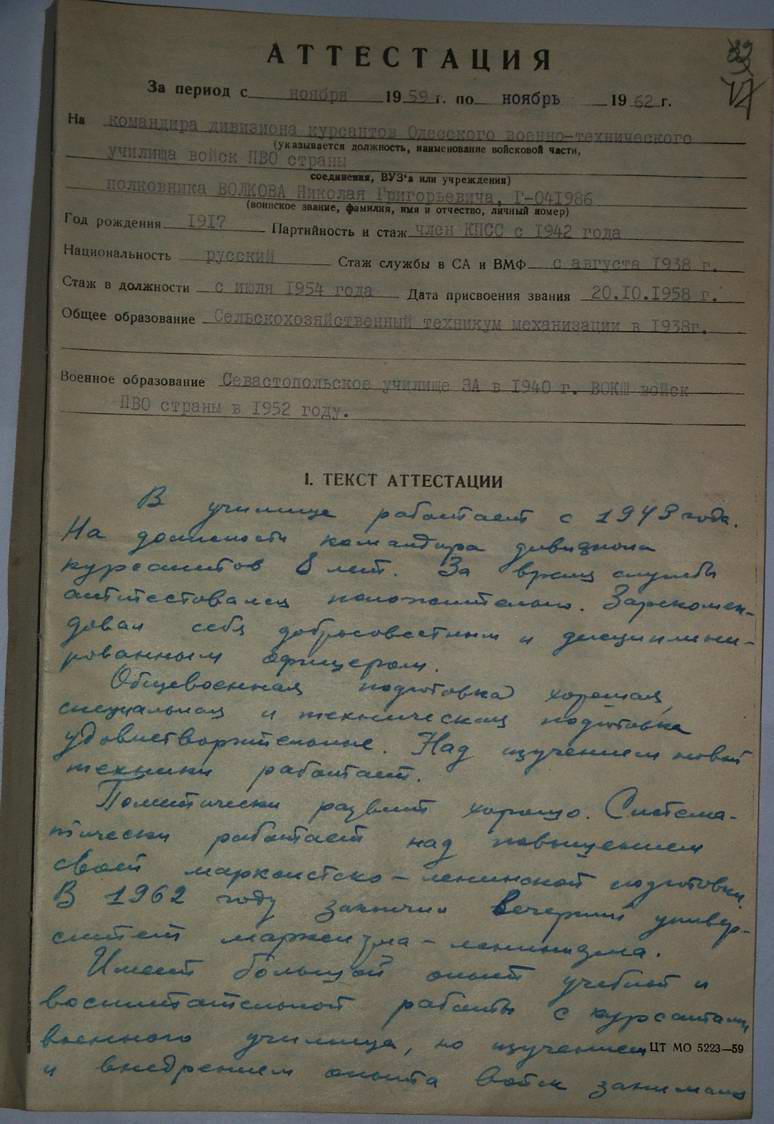 АТТЕСТАЦИЯ
За период с ноября 1959 г. по ноябрь 1962 г.
На командира дивизиона курсантов Одесского военно-технического
(указывается должность, наименование войсковой части,
училища войск ПВО страны
соединения, ВУЗ'а или учреждения)
полковника ВОЛКОВА Николая Григорьевича, Г-041986
(воинское звание, фамилия, имя и отчество, личный номер)
Год рождения 1917 Партийность и стаж член КПСС с 1942 года
Национальность русский Стаж службы в СА и ВМФ с августа 1938 г.
Стаж в должности с июля 1954 года Дата присвоения звания 20.10.1958 г.
Общее образование Сельскохозяйственный техникум механизации в 1938г.
Военное образование Севастопольское училище ЗА в 1940 г. ВОКШ войск
ПВО страны в 1952 году.
I. ТЕКСТ АТТЕСТАЦИИ
В училище работает с 1943 года.
На должности командира дивизиона
курсантов 8 лет. За время службы
аттестовался положительно. Зарекомен-
довал себя добросовестным и дисциплини-
рованным офицером.
Общевоенная подготовка хорошая,
специальная и техническая подготовка
удовлетворительные. Над изучением новой
техники работает.
Политически развит хорошо. Система-
тически работает над повышением
своей марксистско-ленинской подготовки.
В 1962 году закончил вечерний универ-
ситет марксизма-ленинизма.
Имеет большой опыт учебной и
воспитательной работы с курсантами
военного училища, но изучением
ЦТ МО 5223—59
и внедрением опыта войск занимался